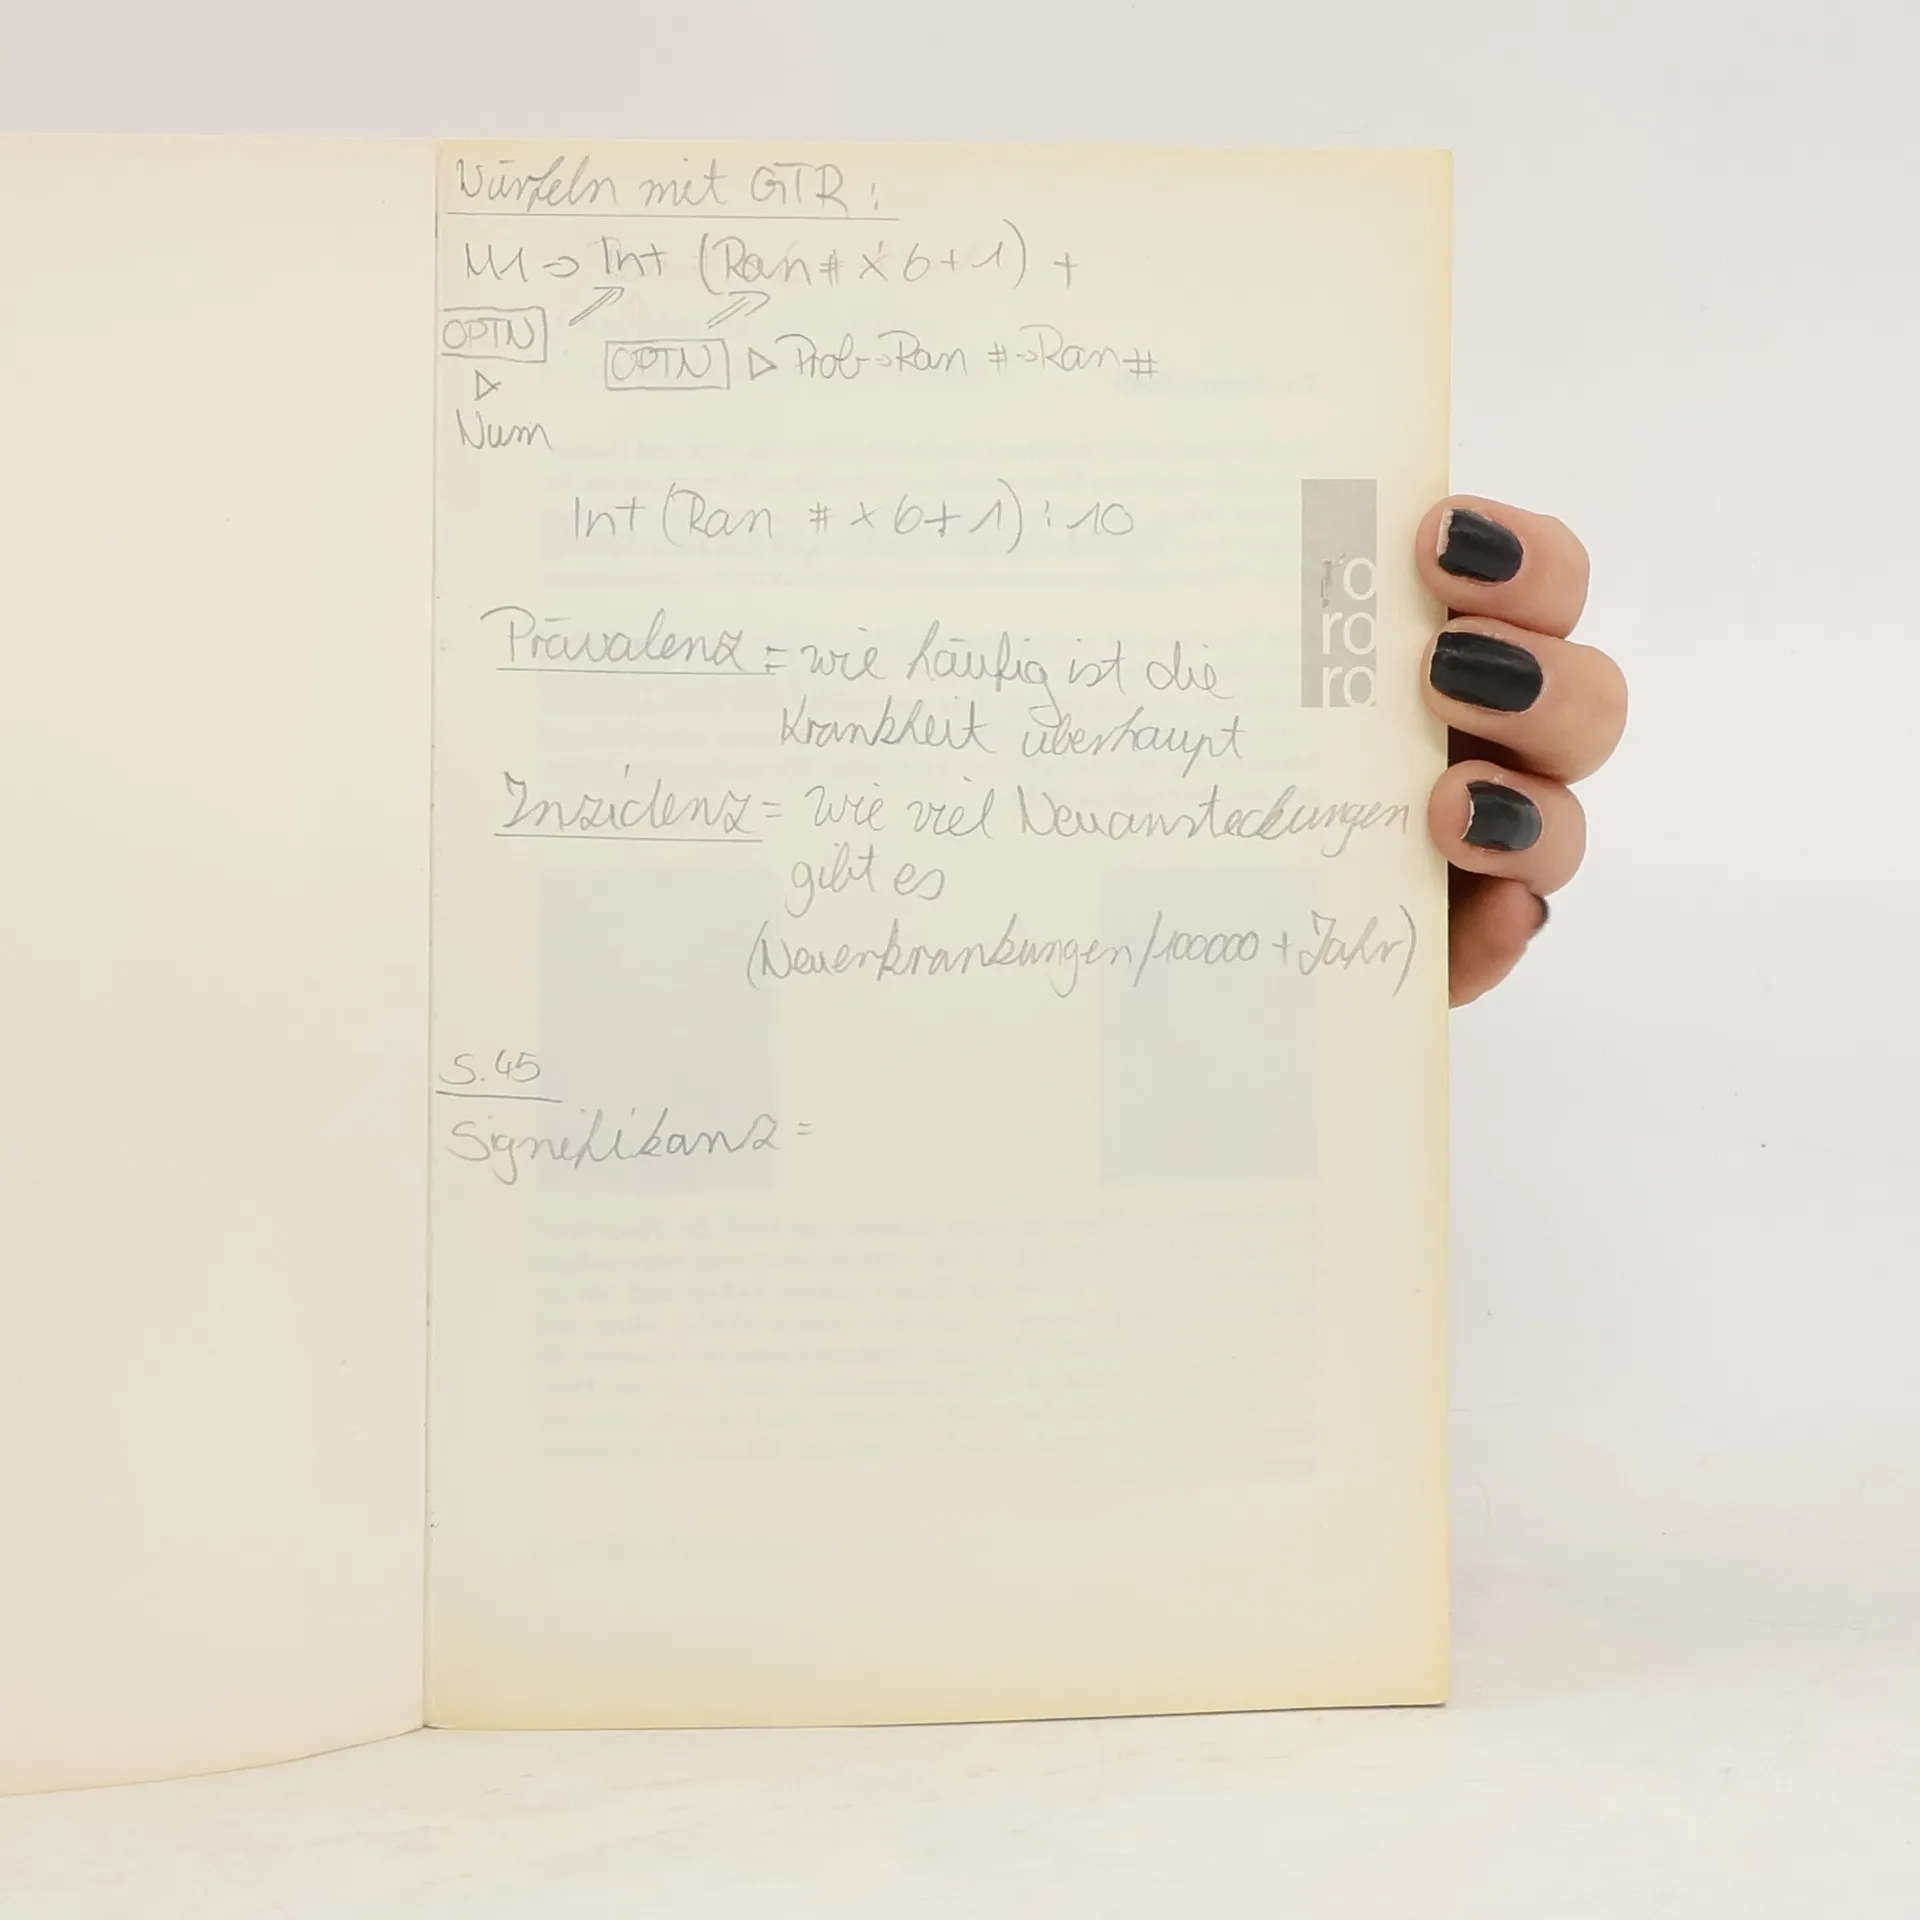 Würfeln mit GTR:
M1 => Int (Ran# x 6+1) +
OPTN
OPTN ▷ Prob->Ran #->Ran#
▷
Num
Int (Ran # x 6+1) : 10
ro
ro
ro
Prävalenz = wie häufig ist die
Krankheit überhaupt
Inzidenz = wie viel Neuansteckungen
gibt es
(Neuerkrankungen/100000 + Jahr)
S. 45
Signifikanz =